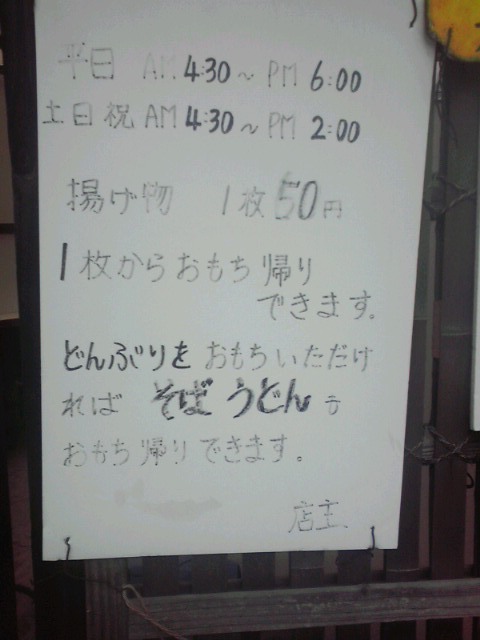 平日 AM 4:30～PM 6:00
土日祝 AM 4:30～PM 2:00
揚げ物 1枚 50円
1枚からおもち帰り
できます。
どんぶりをおもちいただけ
れば そば うどん も
おもち帰りできます。
店主.